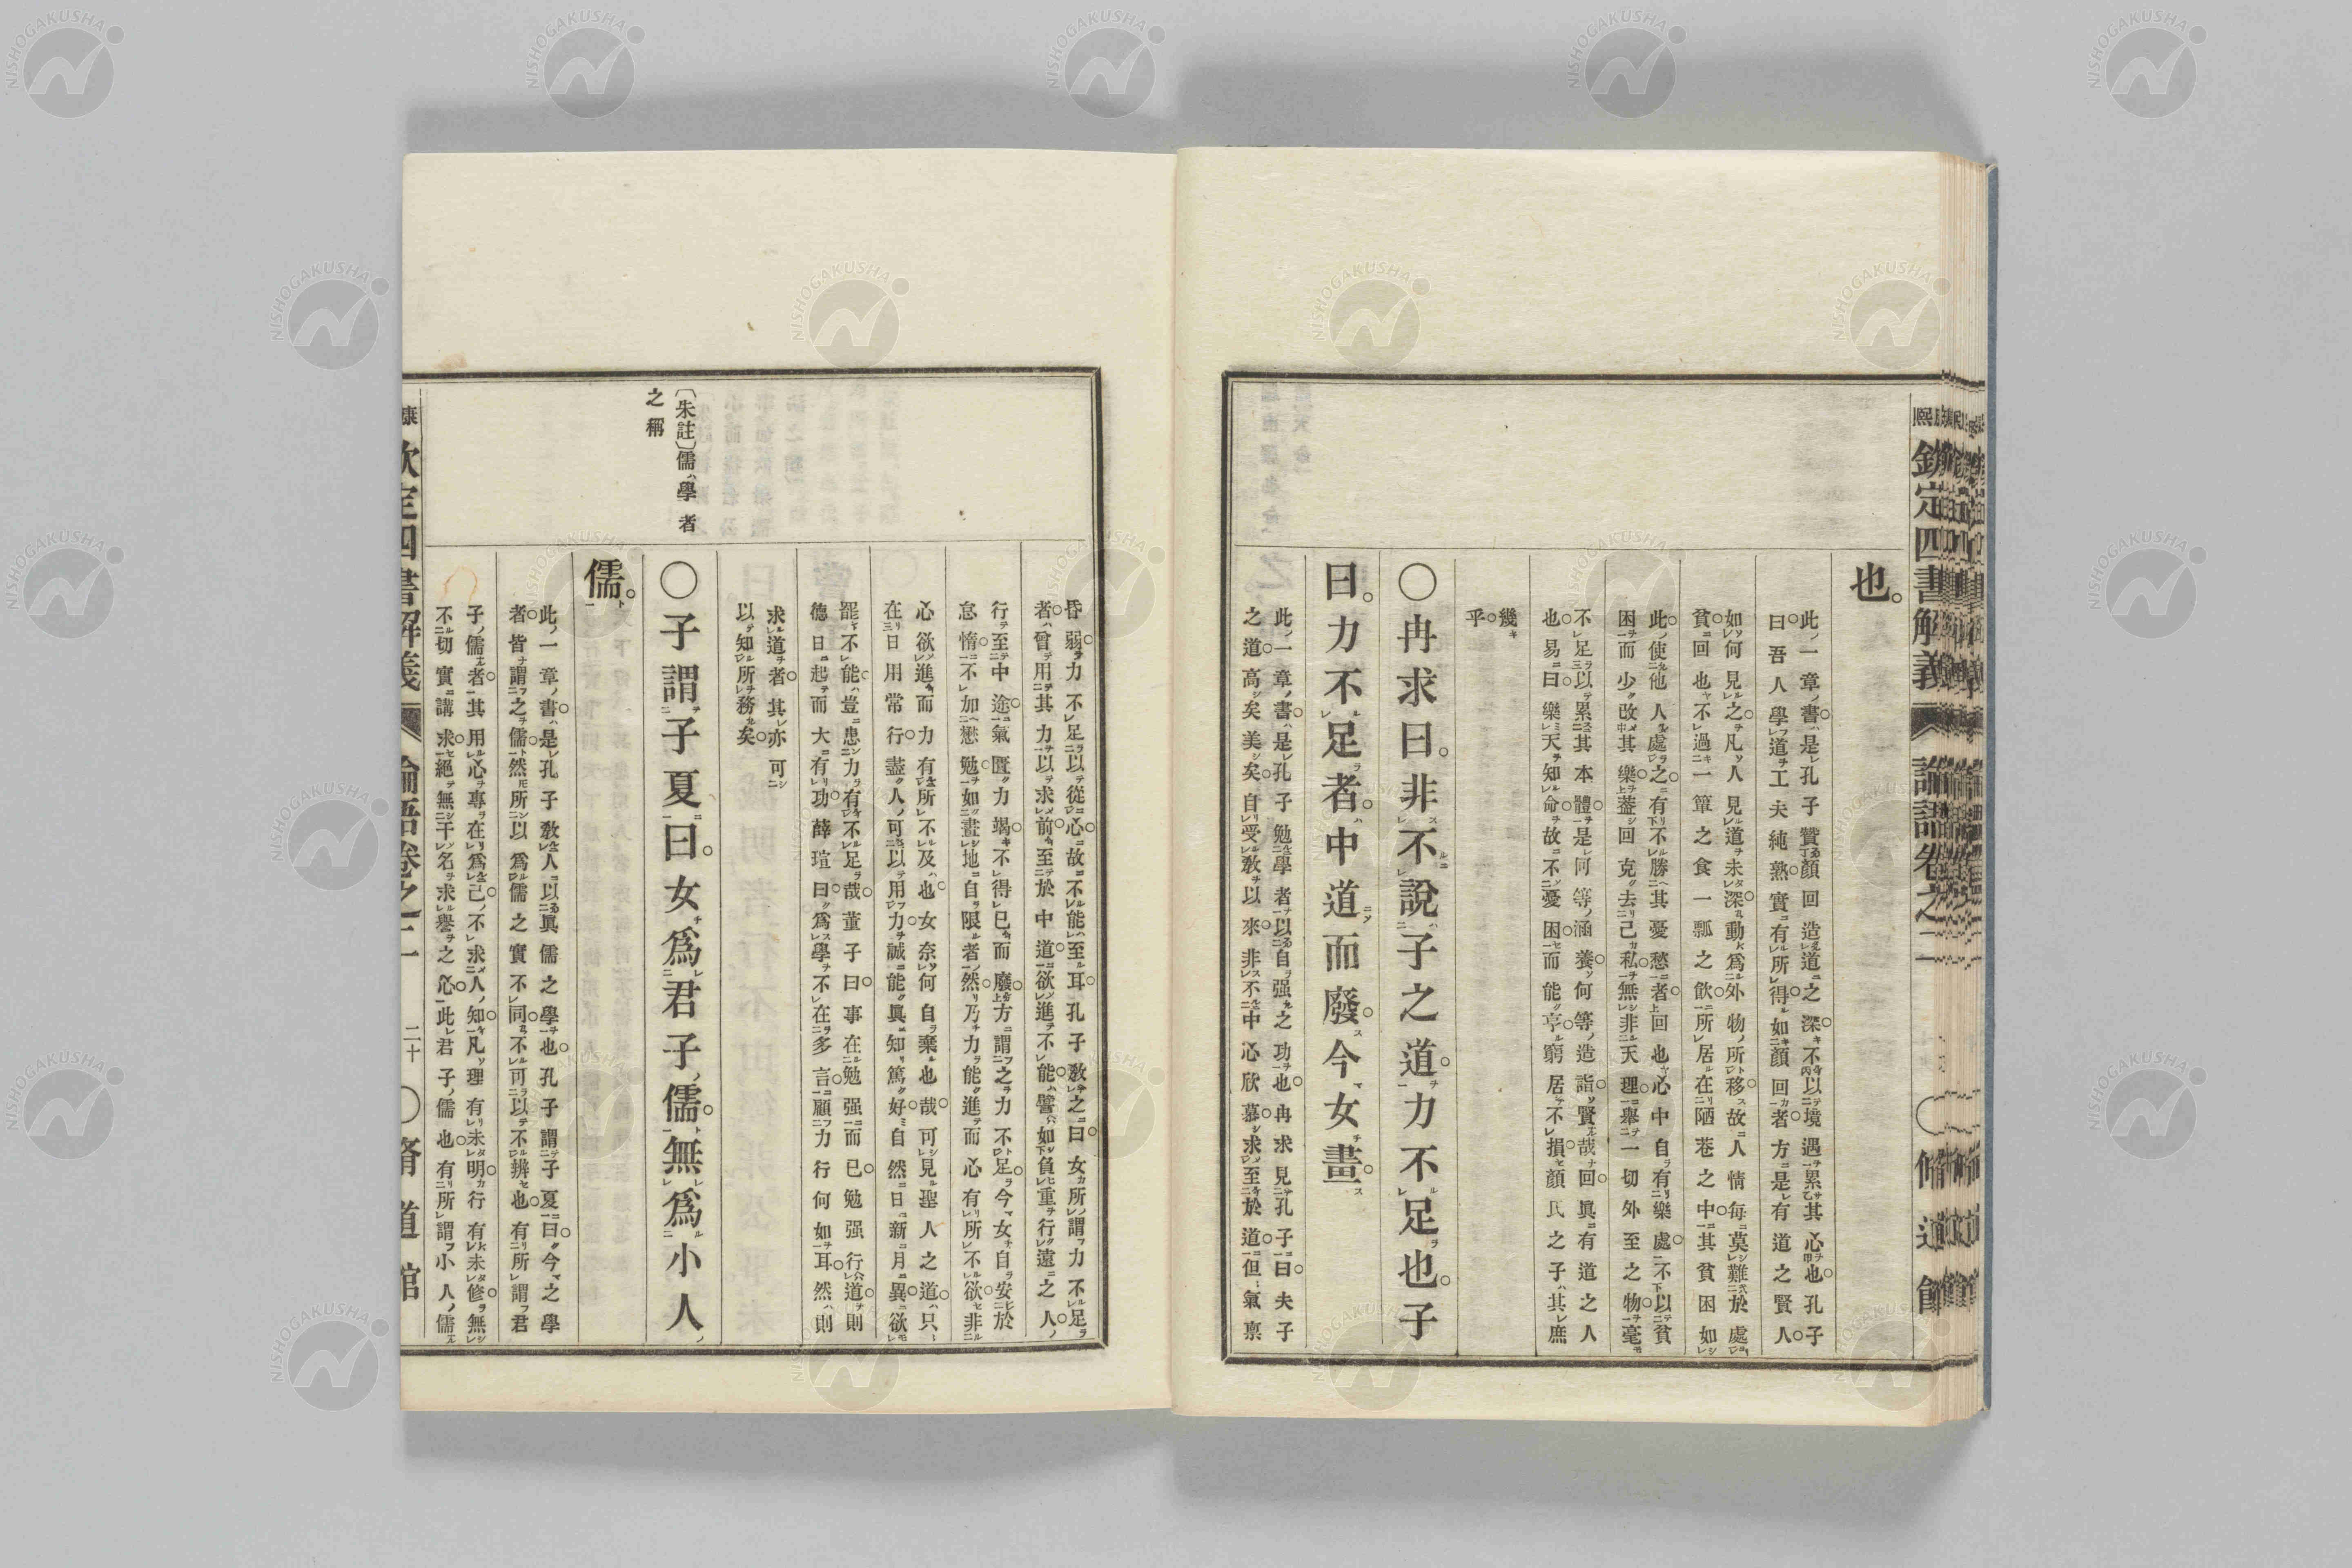 欽定四書解義 論語卷之二 ○脩道館
也。
此一章書是孔子贊顏回造道之深不以境遇累其心也孔子
曰吾人學道工夫純熟實有所得如顏回者方是有道之賢人
如何見之凡人見道未深動爲外物所移故人情每莫難於處
貧回也不過一簞之食一瓢之飮所居在陋巷之中其貧困如
此使他人處之有不勝其憂愁者回也心中自有樂處不以貧
困而少改其樂葢回克去己私無非天理舉一切外至之物毫
不足以累其本體是何等涵養何等造詣賢哉回眞有道之人
也易曰樂天知命故不憂困而能亨窮居不損顏氏之子其庶
幾
乎
○冉求曰。非不說子之道。力不足也。子
曰。力不足者。中道而廢。今女畫。
此一章書是孔子勉學者以自强之功也冉求見孔子曰夫子
之道高矣美矣自受敎以來非不中心欣慕求至於道但氣禀
昏弱力不足以從心故不能至耳孔子敎之曰女所謂力不足
者曾用其力以求前至於中道欲進不能譬如負重行遠之人
行至中途氣匱力竭不得已而廢方謂之力不足今女自安於
怠惰不加懋勉如畫地自限者然乃力能進而心有所不欲非
心欲進而力有所不及也女奈何自棄也哉可見聖人之道只
在日用常行盡人可以用力誠能眞知篤好自然日新月異欲
罷不能豈患力有不足哉董子曰事在勉强而已勉强行道則
德日起而大有功薛瑄曰爲學不在多言顧力行何如耳然則
求道者其亦可
以知所務矣
〔朱註〕儒學者
之稱
○子謂子夏曰。女爲君子儒。無爲小人
儒。
此一章書是孔子敎人以眞儒之學也孔子謂子夏曰今之學
者皆謂之儒然所以爲儒之實不同不可以不辨也有所謂君
子儒者其用心專在爲己不求人知凡理有未明行有未修無
不切實講求絕無干名求譽之心此君子儒也有所謂小人儒
康 欽定四書解義 論語卷之二 二十 ○脩道館